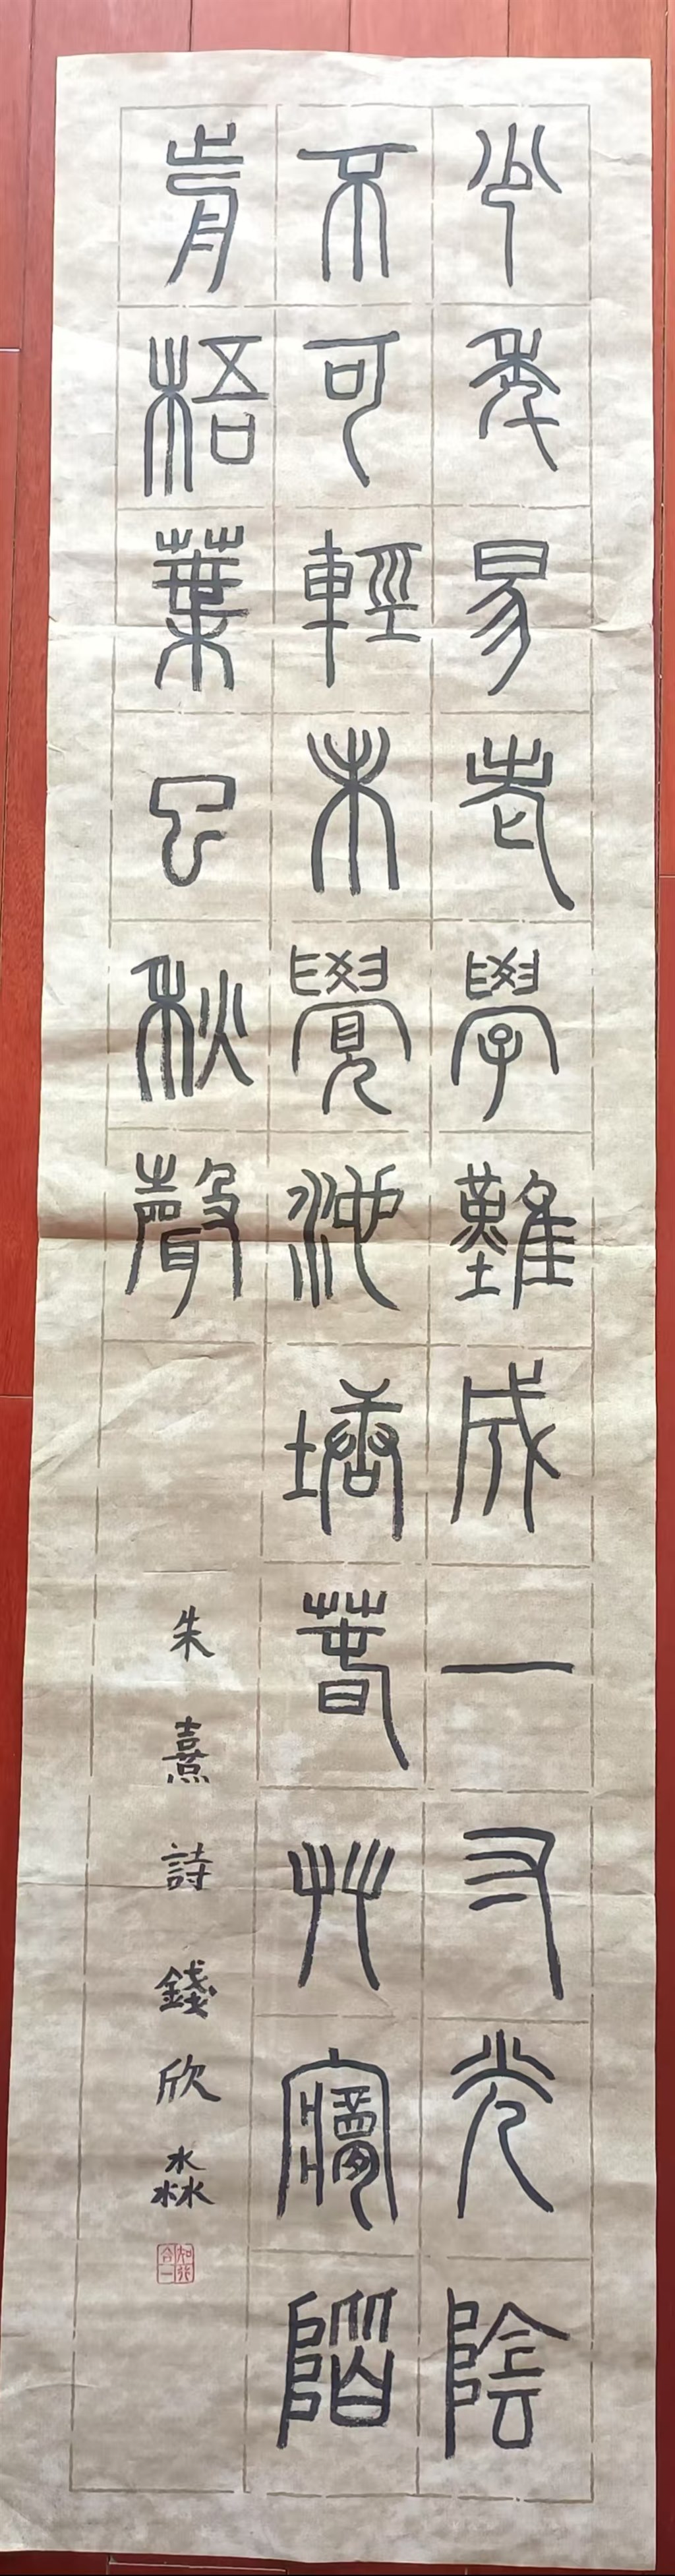 少年易老學難成一寸光陰
不可輕未覺池塘春草夢階
前梧葉已秋聲
朱熹詩錢欣淼
知行合一